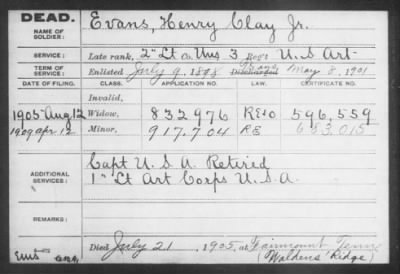 DEAD.
NAME OF SOLDIER:
Evans, Henry Clay Jr.
SERVICE:
Late rank, 2" Lt Co. Uns 3 Reg't U.S Art
TERM OF SERVICE:
Enlisted July 9, 1898 Discharged Trans, May 8, 1901
DATE OF FILING. CLASS. APPLICATION NO. LAW. CERTIFICATE NO.
Invalid,
1905 Aug 12 Widow, 832976 596,559
1909 apr 12 Minor, 917.704 683,015
ADDITIONAL SERVICES:
Capt U.S.A. Retired
1" Lt Art Corps U.S.A.
REMARKS:
Died July 21, 1905, at Fairmount Tenn
(Waldens Ridge)